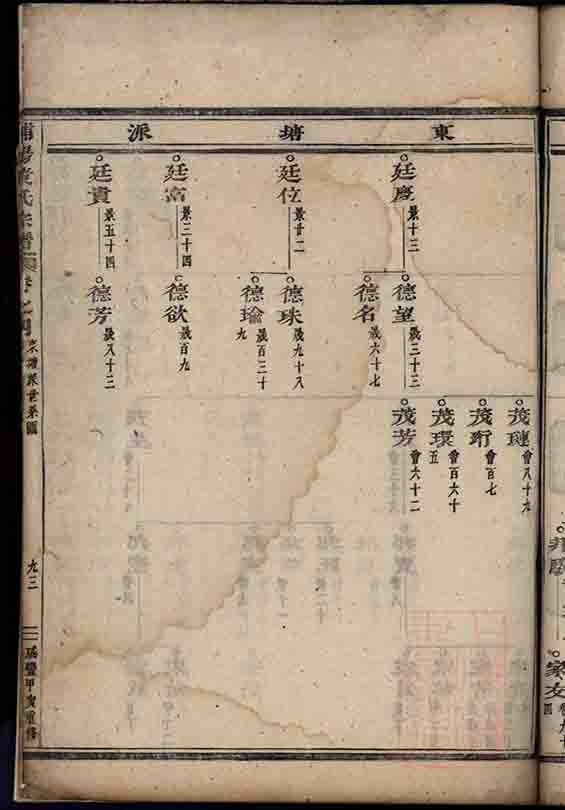 東塘派
廷慶 景十三
廷位 景廿二
廷富 景三十四
廷貴 景五十四
德望 晟三十三
德名 晟六十七
德珠 晟九十八
德瑜 晟百三十九
德欲 晟百九
德芳 晟八十三
茂璉 會八十九
茂珩 會百七
茂環 會百六十五
茂芳 會六十二
氏宗譜
東塘派世系圖
九三
重修
家
四